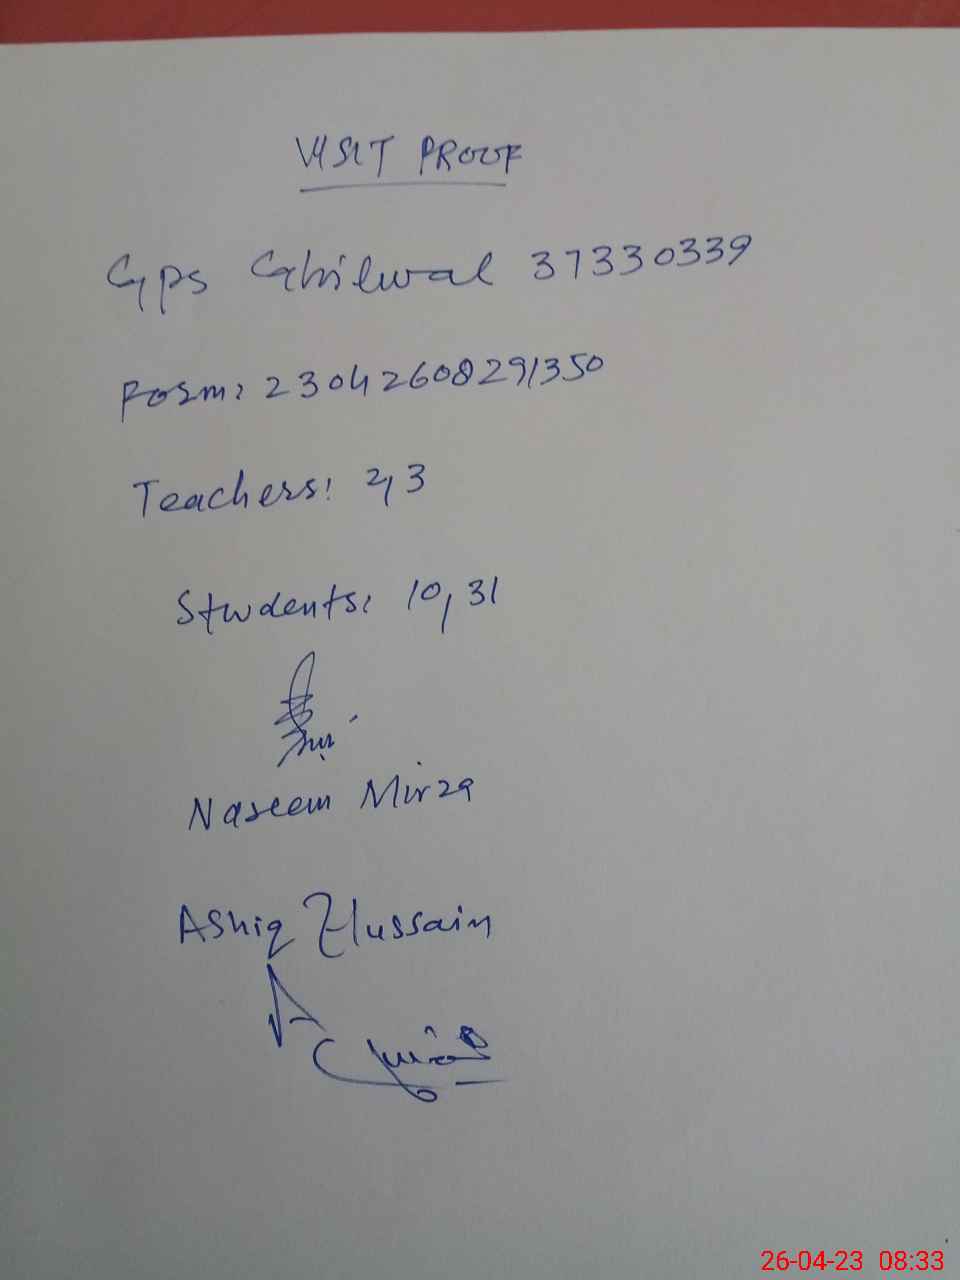 VISIT PROOF
GPS Ghilwal 37330339
Form: 23042608291350
Teachers: 2,3
Students: 10,31
Naseem Mirza
Ashiq Hussain
26-04-23 08:33